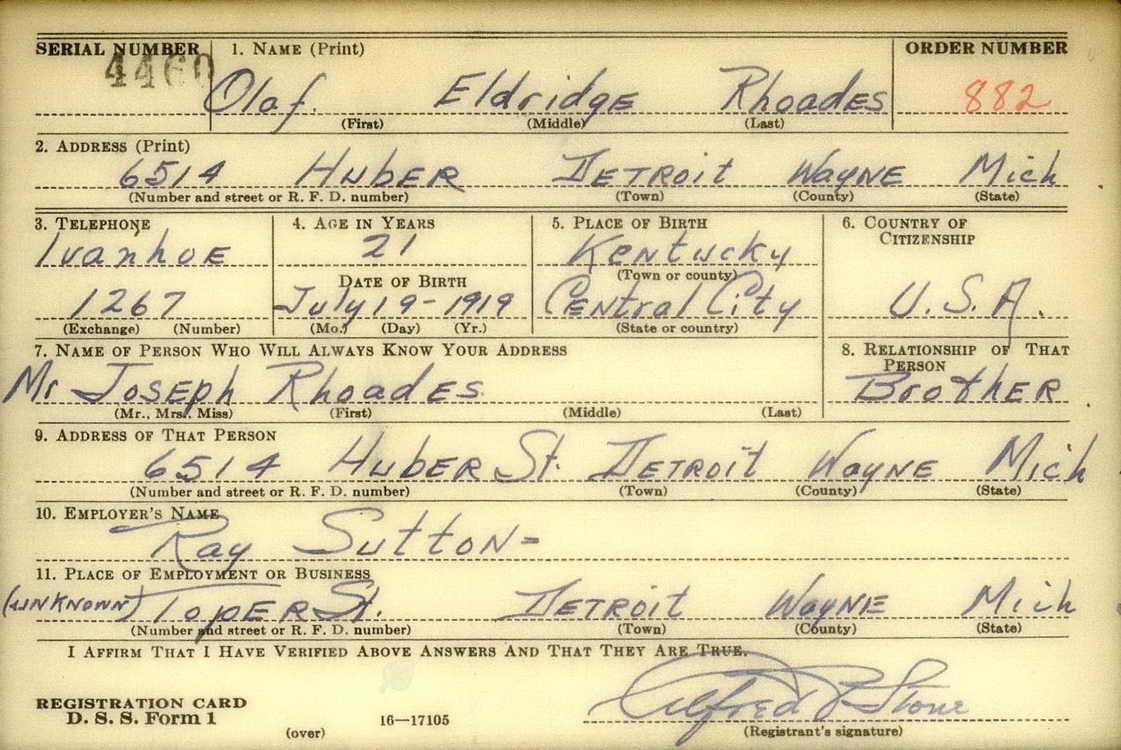 SERIAL NUMBER 1. NAME (Print) ORDER NUMBER
4460 Olaf. Eldridge Rhoades 882
(First) (Middle) (Last)
2. ADDRESS (Print)
6514 HUBER DETROIT WAYNE Mich
(Number and street or R. F. D. number) (Town) (County) (State)
3. TELEPHONE 4. AGE IN YEARS 5. PLACE OF BIRTH 6. COUNTRY OF CITIZENSHIP
IvanhoE 21 Kentucky
(Town or county)
DATE OF BIRTH
1267 July 19-1919 Central City U.S.A.
(Exchange) (Number) (Mo.) (Day) (Yr.) (State or country)
7. NAME OF PERSON WHO WILL ALWAYS KNOW YOUR ADDRESS 8. RELATIONSHIP OF THAT PERSON
Mr Joseph Rhoades BrothER
(Mr., Mrs., Miss) (First) (Middle) (Last)
9. ADDRESS OF THAT PERSON
6514 HUBER St. DETROIT WAYNE Mich
(Number and street or R. F. D. number) (Town) (County) (State)
10. EMPLOYER'S NAME
Ray SuttoN-
11. PLACE OF EMPLOYMENT OR BUSINESS
(UNKNOWN) TopER St. DETROIT WAYNE Mich
(Number and street or R. F. D. number) (Town) (County) (State)
I AFFIRM THAT I HAVE VERIFIED ABOVE ANSWERS AND THAT THEY ARE TRUE.
REGISTRATION CARD
D. S. S. Form 1 Alfred Stone
(over) 16—17105 (Registrant's signature)